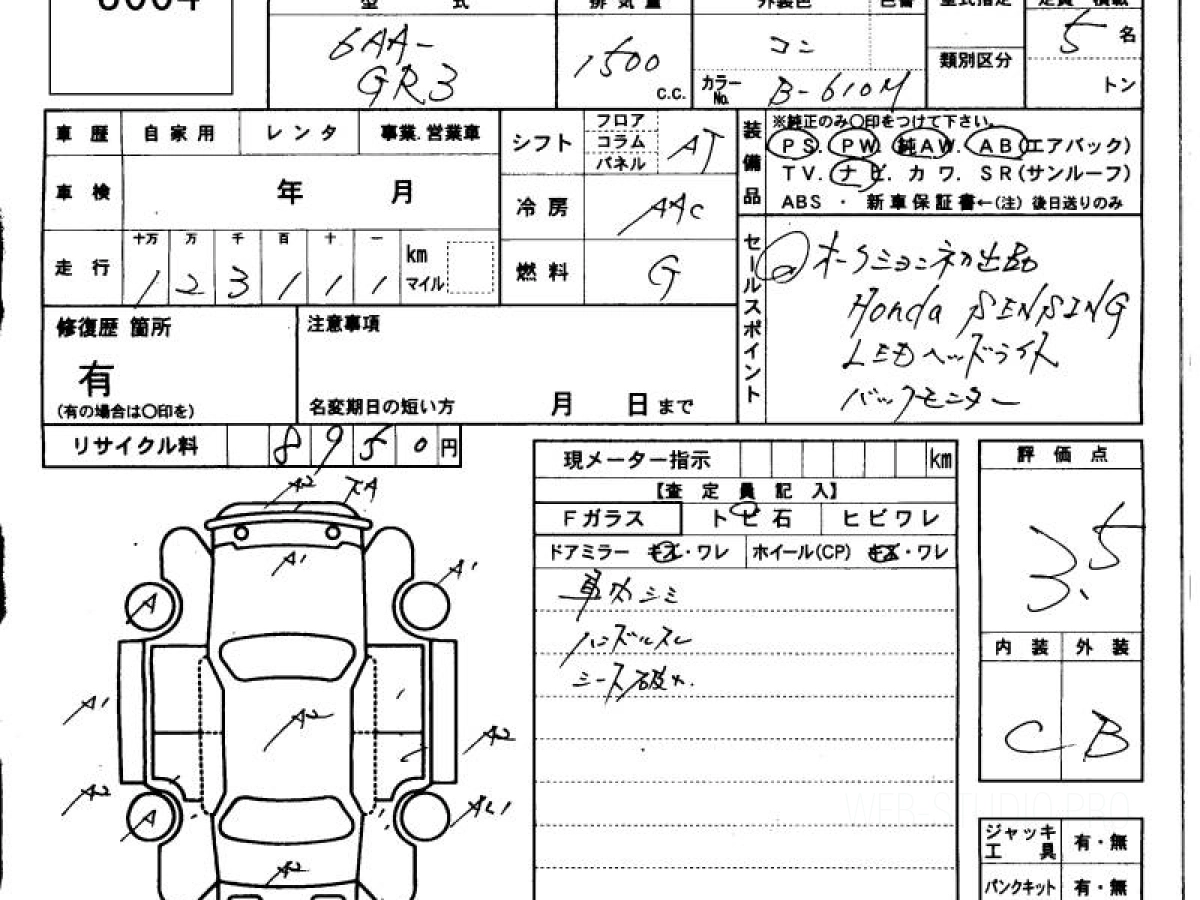 型 式
排 気 量
外装色
色番
型式指定
定員 積載
6AA-
GR3
1500
c.c.
コン
カラーNo.
B-610M
類別区分
5 名
トン
車 歴
自 家 用
レ ン タ
事業.営業車
シフト
フロア
コラム
パネル
AT
装備品
※純正のみ〇印をつけて下さい。
PS. PW. 純AW. AB(エアバック)
TV. ナビ. カワ. SR(サンルーフ)
ABS ・ 新車保証書←(注) 後日送りのみ
車 検
年 月
冷 房
AAC
走 行
十万 万 千 百 十 一
1 2 3 1 1 1
km
マイル
燃 料
G
セールスポイント
オークション初出品
Honda SENSING
LEDヘッドライト
バックモニター
修復歴 箇所
有
(有の場合は〇印を)
注意事項
名変期日の短い方 月 日まで
リサイクル料
8950円
現メーター指示
km
【査 定 員 記 入】
Fガラス
ト ビ 石
ヒ ビ ワ レ
ドアミラー キズ・ワレ
ホイール(CP) キズ・ワレ
車内シミ
ハンドルスレ
シート破れ.
評 価 点
3.5
内 装
外 装
C
B
A2
A1
A1
A
A1
A2
A2
A2
A
A2
WEB STUDIO PRO
ジャッキ
工 具
有・無
パンクキット
有・無